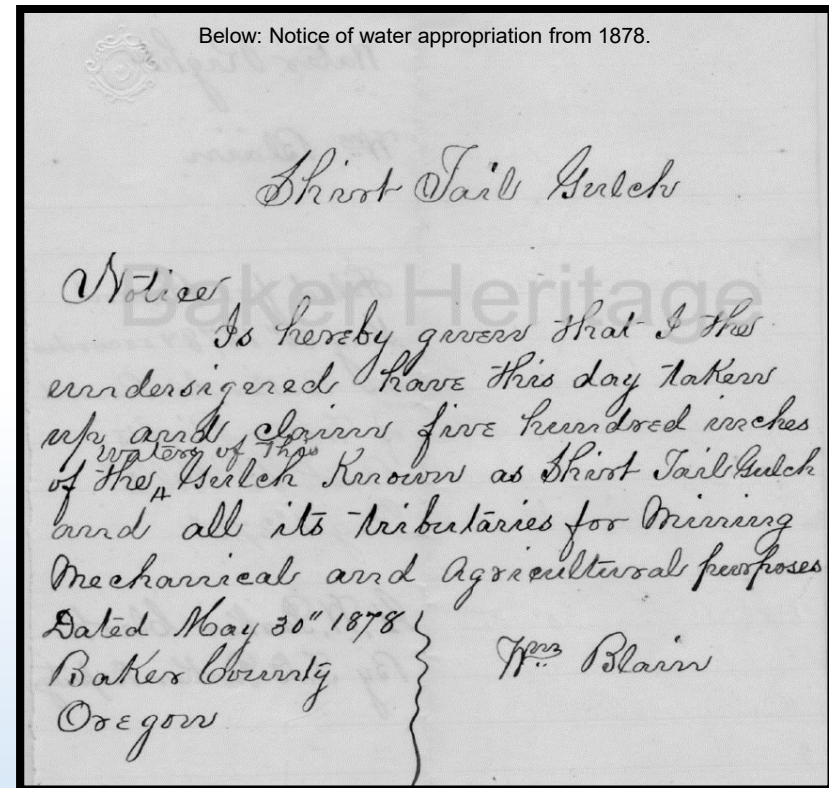 Below: Notice of water appropriation from 1878.
Shirt Tail Gulch
Baker Heritage
Notice
Is hereby given that I the
undersigned have this day taken
up and claim five hundred inches
waters of this
of the Gulch Known as Shirt Tail Gulch
and all its tributaries for Mining
Mechanical and Agricultural purposes
Dated May 30" 1878
Baker County
Oregon
Wm Blain